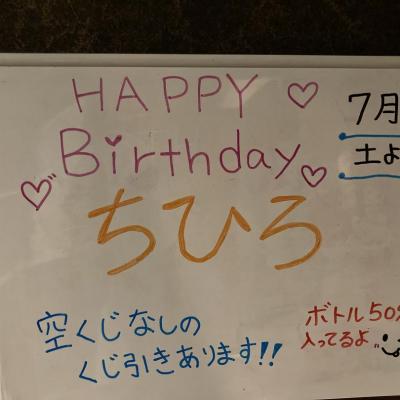 HAPPY
Birthday
ちひろ
7月
土よ
空くじなしの
くじ引きあります!!
ボトル50%
入ってるよ